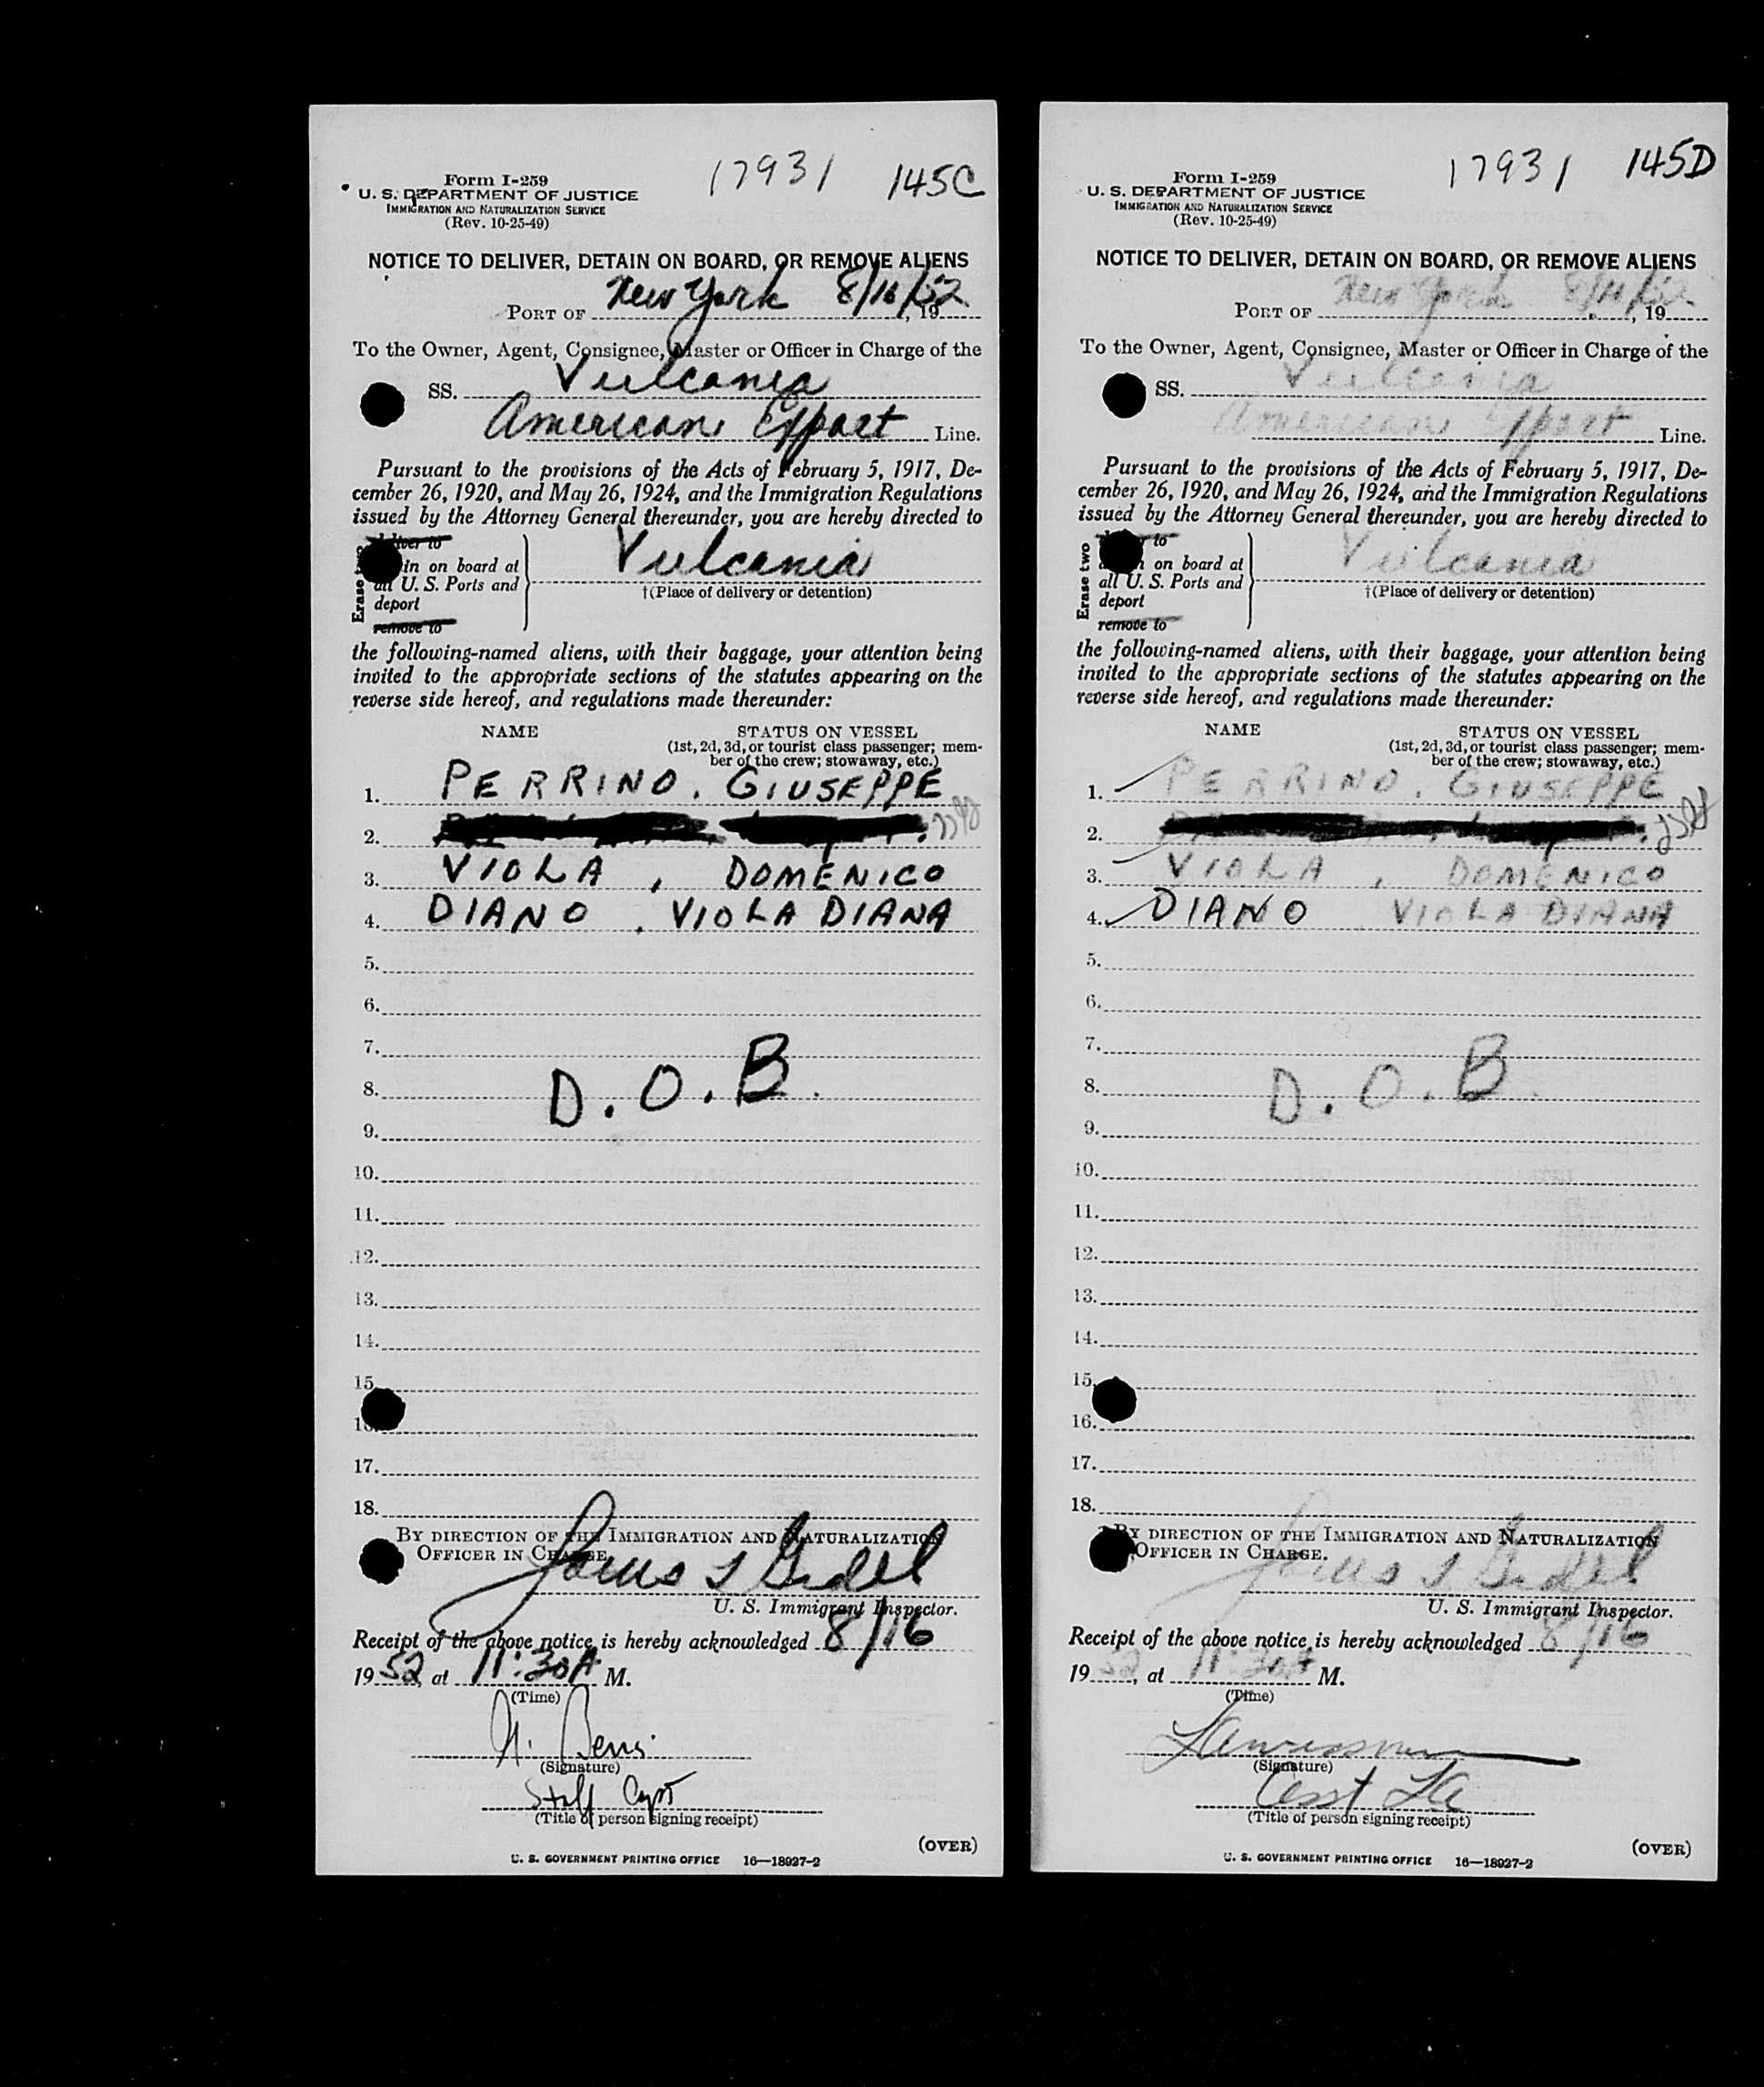 17931 145C
Form I-259
U. S. DEPARTMENT OF JUSTICE
IMMIGRATION AND NATURALIZATION SERVICE
(Rev. 10-25-49)
NOTICE TO DELIVER, DETAIN ON BOARD, OR REMOVE ALIENS
PORT OF New York 8/16/52, 19
To the Owner, Agent, Consignee, Master or Officer in Charge of the
SS. Vulcania
American Export Line.
Pursuant to the provisions of the Acts of February 5, 1917, De-
cember 26, 1920, and May 26, 1924, and the Immigration Regulations
issued by the Attorney General thereunder, you are hereby directed to
Erase two
liver to
in on board at
all U. S. Ports and
deport
remove to
Vulcania
†(Place of delivery or detention)
the following-named aliens, with their baggage, your attention being
invited to the appropriate sections of the statutes appearing on the
reverse side hereof, and regulations made thereunder:
NAME STATUS ON VESSEL
(1st, 2d, 3d, or tourist class passenger; mem-
ber of the crew; stowaway, etc.)
1. PERRINO, GIUSEPPE
2.
3. VIOLA, DOMENICO
4. DIANO, VIOLA DIANA
5.
6.
7.
8. D.O.B.
9.
10.
11.
12.
13.
14.
15.
16.
17.
18.
BY DIRECTION OF THE IMMIGRATION AND NATURALIZATION
OFFICER IN CHARGE.
U. S. Immigrant Inspector.
Receipt of the above notice is hereby acknowledged 8/16
1952, at 11:30 A. M.
(Time)
(Signature)
Staff Capt
(Title of person signing receipt)
(OVER)
U. S. GOVERNMENT PRINTING OFFICE 16—18927-2
17931 145D
Form I-259
U. S. DEPARTMENT OF JUSTICE
IMMIGRATION AND NATURALIZATION SERVICE
(Rev. 10-25-49)
NOTICE TO DELIVER, DETAIN ON BOARD, OR REMOVE ALIENS
PORT OF New York 8/16/52, 19
To the Owner, Agent, Consignee, Master or Officer in Charge of the
SS. Vulcania
American Export Line.
Pursuant to the provisions of the Acts of February 5, 1917, De-
cember 26, 1920, and May 26, 1924, and the Immigration Regulations
issued by the Attorney General thereunder, you are hereby directed to
Erase two
to
on board at
all U. S. Ports and
deport
remove to
Vulcania
†(Place of delivery or detention)
the following-named aliens, with their baggage, your attention being
invited to the appropriate sections of the statutes appearing on the
reverse side hereof, and regulations made thereunder:
NAME STATUS ON VESSEL
(1st, 2d, 3d, or tourist class passenger; mem-
ber of the crew; stowaway, etc.)
1. PERRINO, GIUSEPPE
2.
3. VIOLA, DOMENICO
4. DIANO, VIOLA DIANA
5.
6.
7.
8. D.O.B.
9.
10.
11.
12.
13.
14.
15.
16.
17.
18.
BY DIRECTION OF THE IMMIGRATION AND NATURALIZATION
OFFICER IN CHARGE.
U. S. Immigrant Inspector.
Receipt of the above notice is hereby acknowledged 8/16
1952, at 11:30 A M.
(Time)
(Signature)
Asst
(Title of person signing receipt)
(OVER)
U. S. GOVERNMENT PRINTING OFFICE 16—18927-2